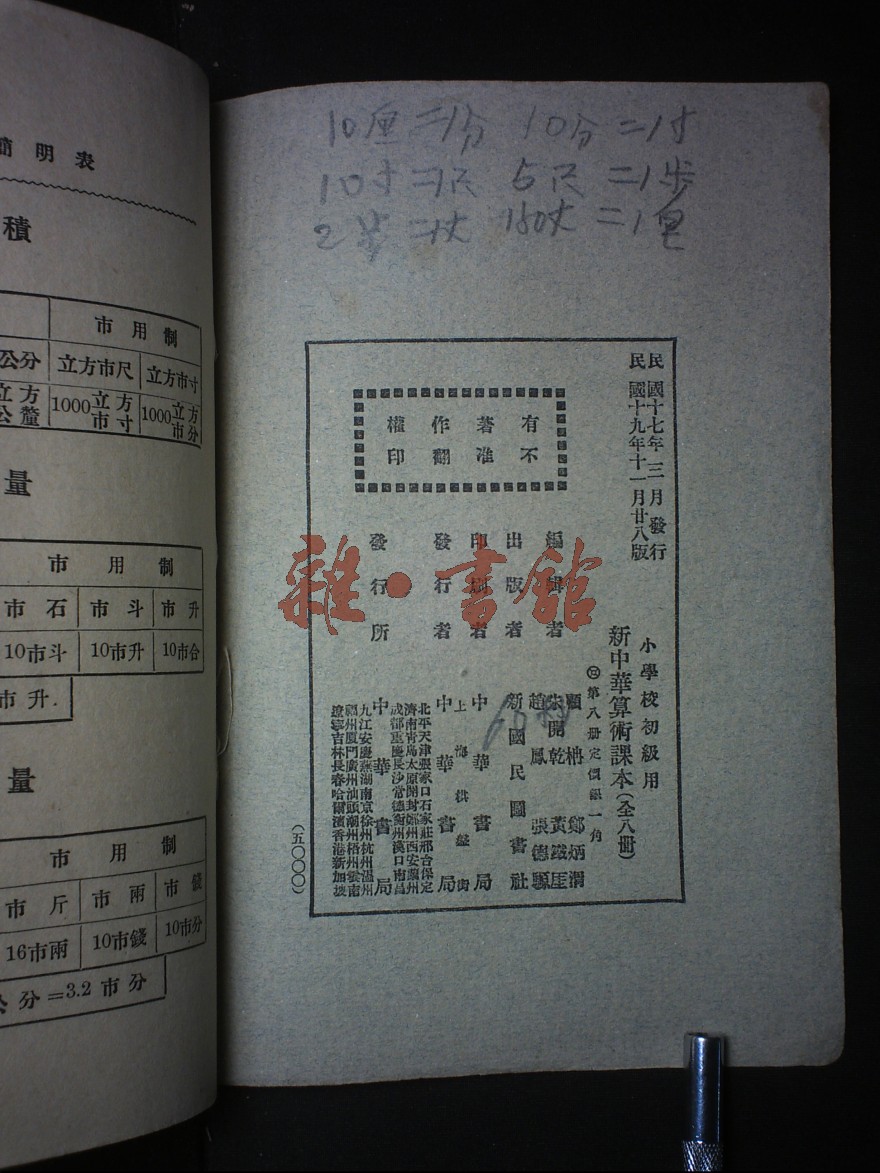 簡明表
積
市用制
公分 立方市尺 立方市寸
立方公釐 1000立方市寸 1000立方市分
量
市用制
市石 市斗 市升
10市斗 10市升 10市合
市升.
量
市用制
市斤 市兩 市錢
16市兩 10市錢 10市分
公分=3.2市分
10厘=1分 10分=1寸
10寸=1尺 5尺=1步
2步=1丈 180丈=1里
民國十七年三月發行
民國十九年十一月廿八版
小學校初級用
新中華算術課本(全八冊)
第八冊定價銀一角
有著作權
不准翻印
編輯者 顧枏 鄭炳渭
朱開乾 黃鐵崖
趙鳳 張德驥
出版者 新國民圖書社
印刷者 中華書局
上海
發行者 中華書局
發行所 中華書局
北平天津張家口石家莊邢台保定
濟南青島太原開封鄭州西安蘭州
成都重慶長沙常德衡州漢口南昌
九江安慶蕪湖南京徐州杭州溫州
福州廈門廣州汕頭潮州梧州雲南
遼寧吉林長春哈爾濱香港新加坡
(五〇〇〇)
雜·書館